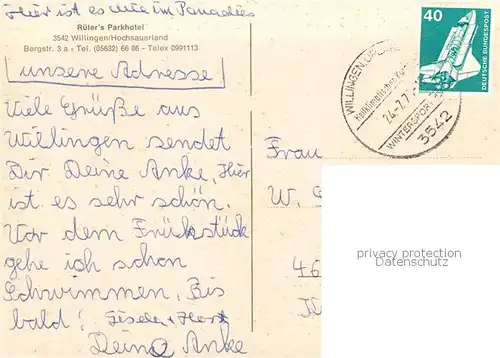 Hier ist es wie im Paradies
Rüter's Parkhotel
3542 Willingen/Hochsauerland
Bergstr. 3 a · Tel. (05632) 66 86 - Telex 0991113
[unsere Adresse]
Viele Grüße aus
Willingen sendet
Dir Deine Anke, Hier
ist es sehr schön.
Vor dem Frückstück
gehe ich schon
Schwimmen, Bis
bald! Gisela + Horst
Deine Anke
40
DEUTSCHE BUNDESPOST
WILLINGEN, UPLAND
Heilklimatischer
24.-7.7
WINTERSPORT
3542
Frau
W.
46
privacy protection
Datenschutz